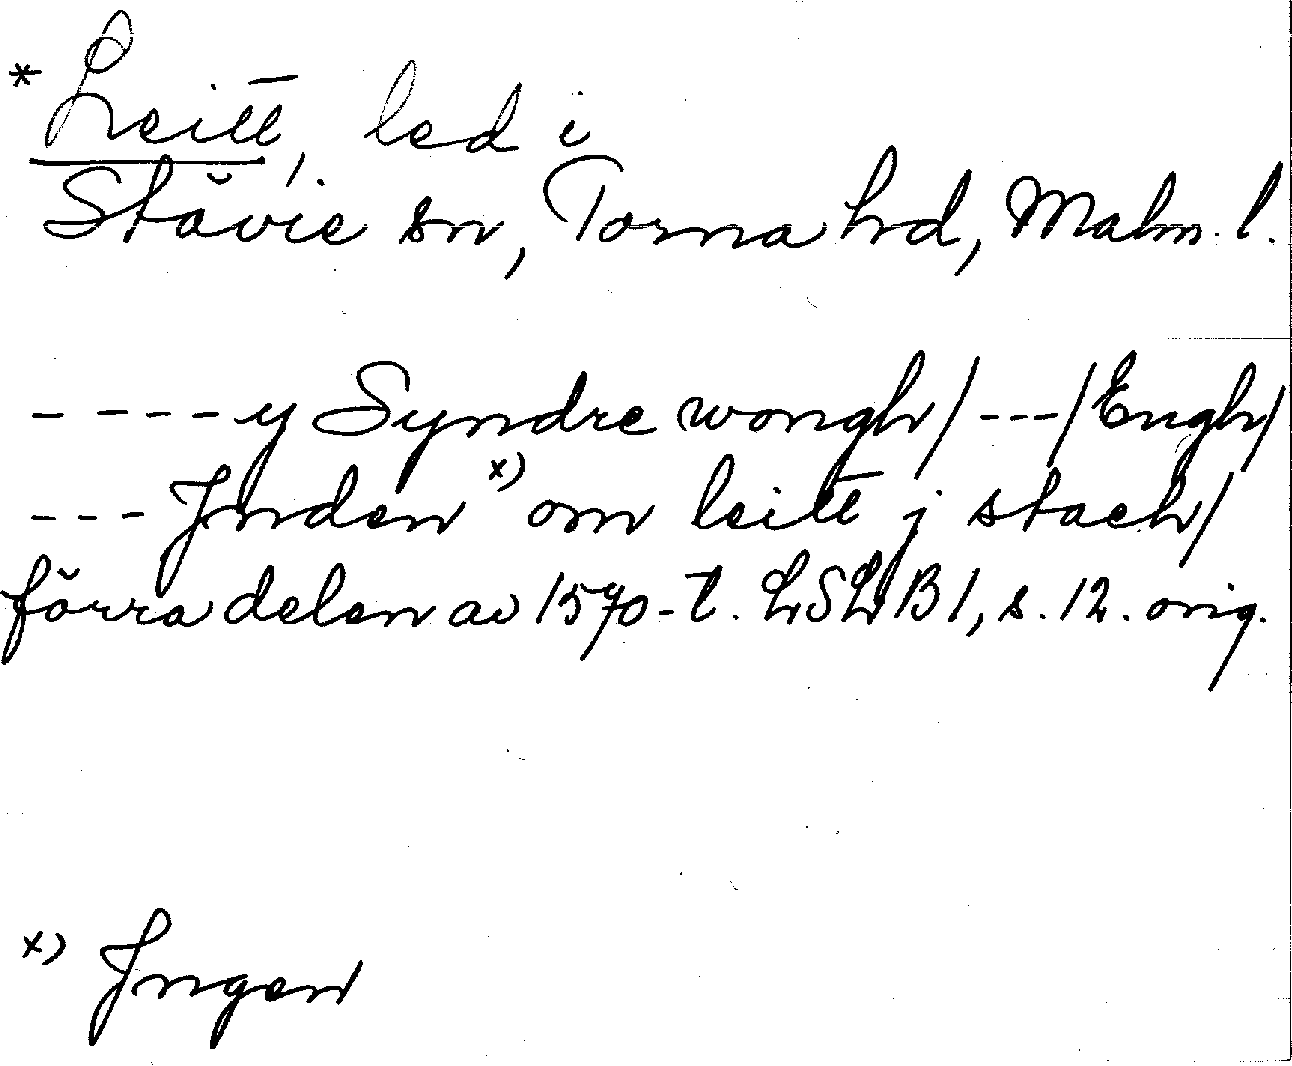 * Leitt, led i
Stävie sn, Torna hd, Malm. l.
- - - - y Syndre wongh/ - - - /Engh/
- - - Jnden x) om leitt j stach/
förra delen av 1590-t. LSLB 1, s. 12. orig.
x) Jngen